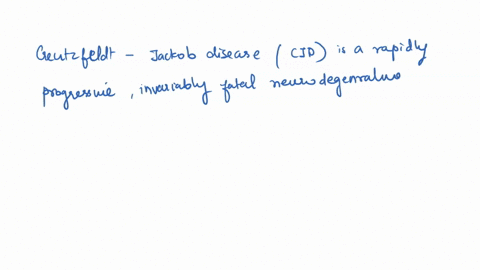 Creutzfeldt - Jackob disease ( CJD) is a rapidly
progressive , invariably fatal neurodegenerative